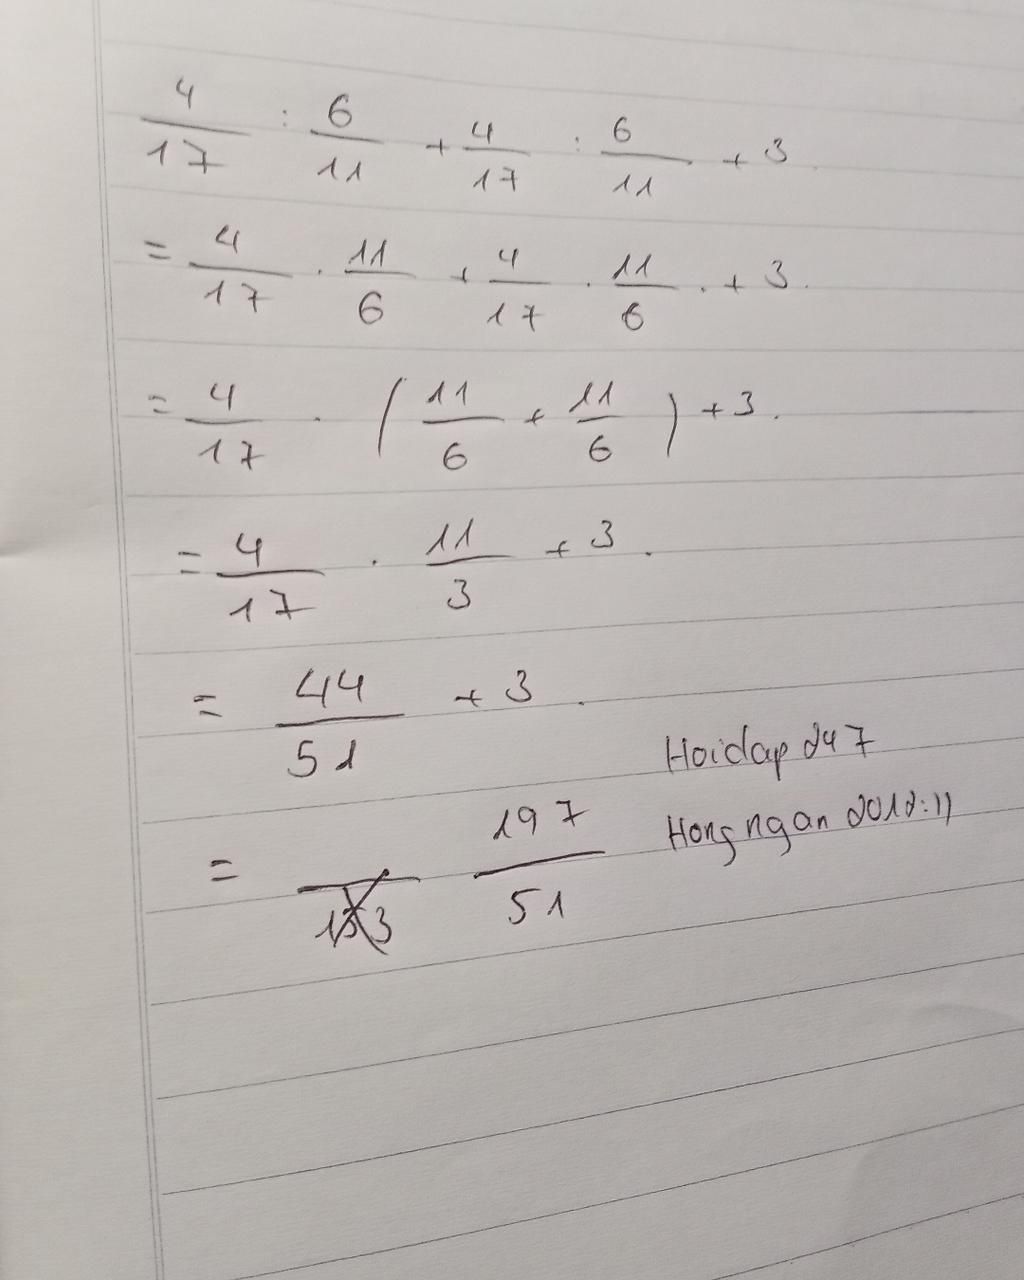 4/17 : 6/11 + 4/17 : 6/11 + 3
= 4/17 . 11/6 + 4/17 . 11/6 . + 3.
= 4/17 . (11/6 + 11/6) + 3.
= 4/17 . 11/3 + 3.
= 44/51 + 3.
Hoidap 247
= 197/51
Hong ngan 2012:))